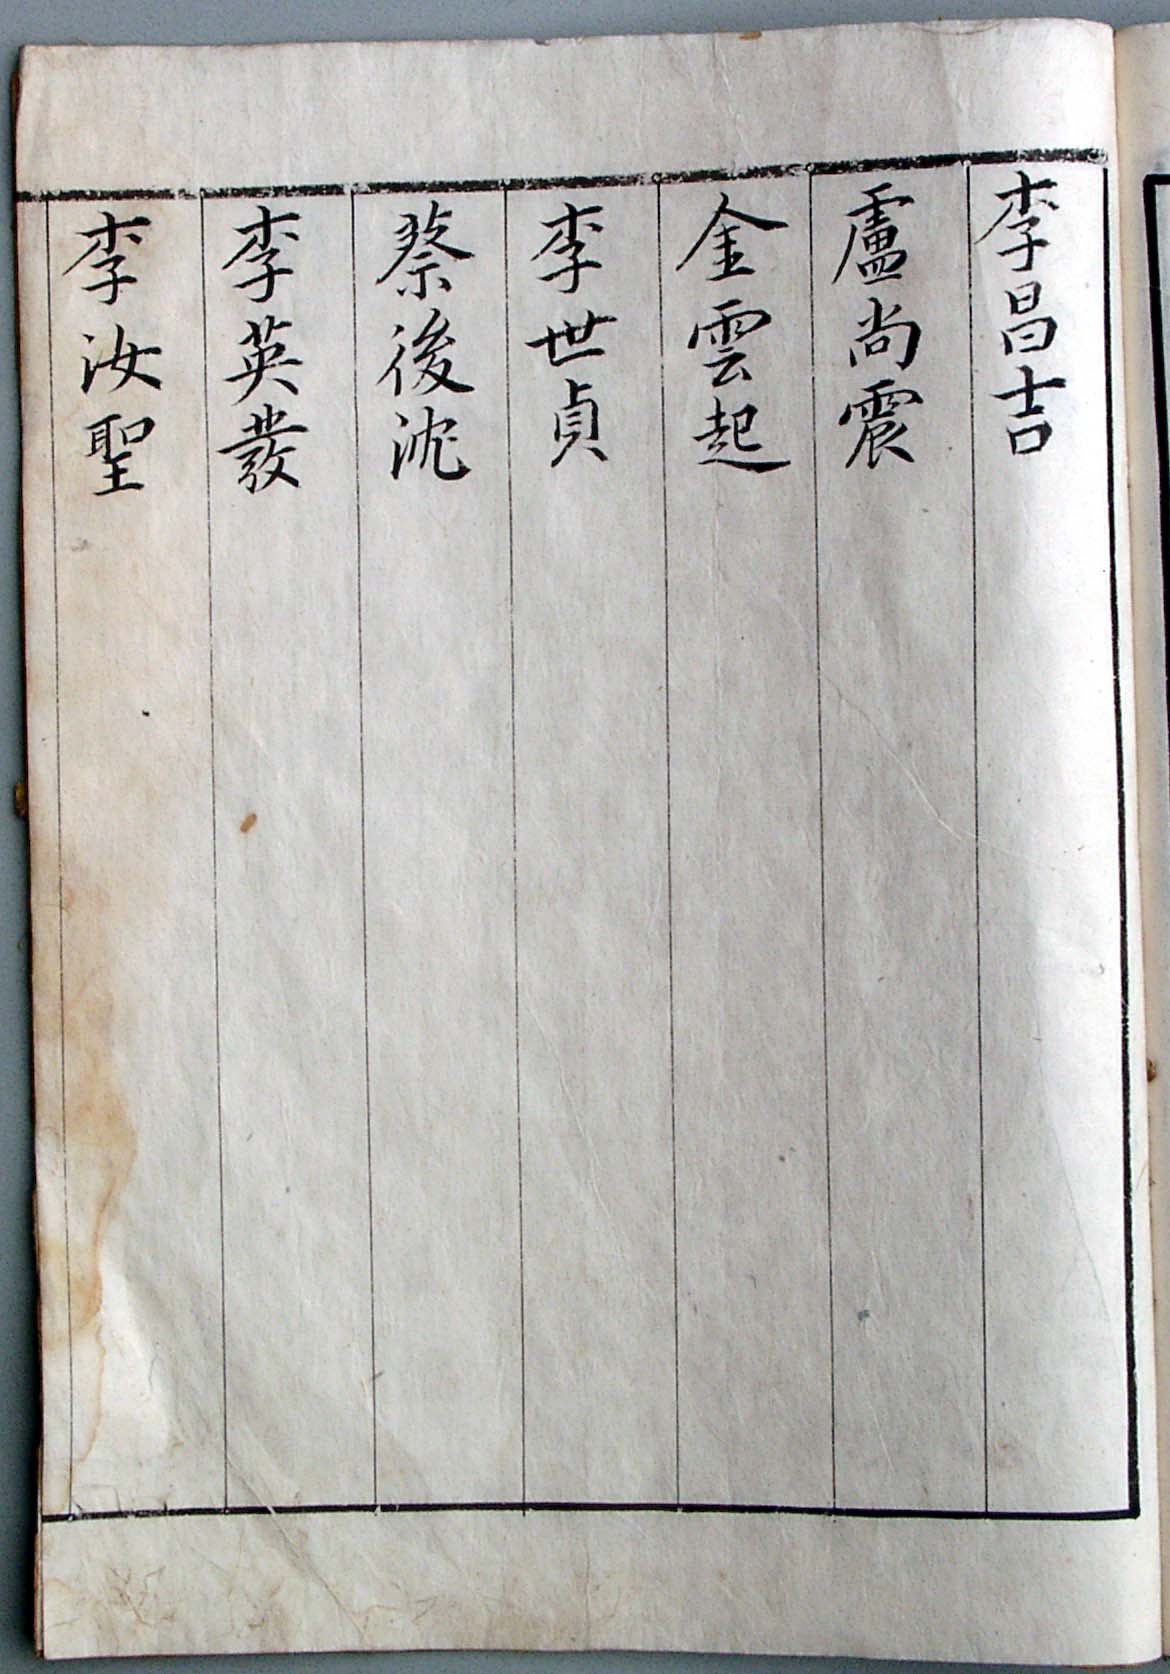 李昌吉
盧尚震
金雲起
李世貞
蔡後沈
李英發
李汝聖